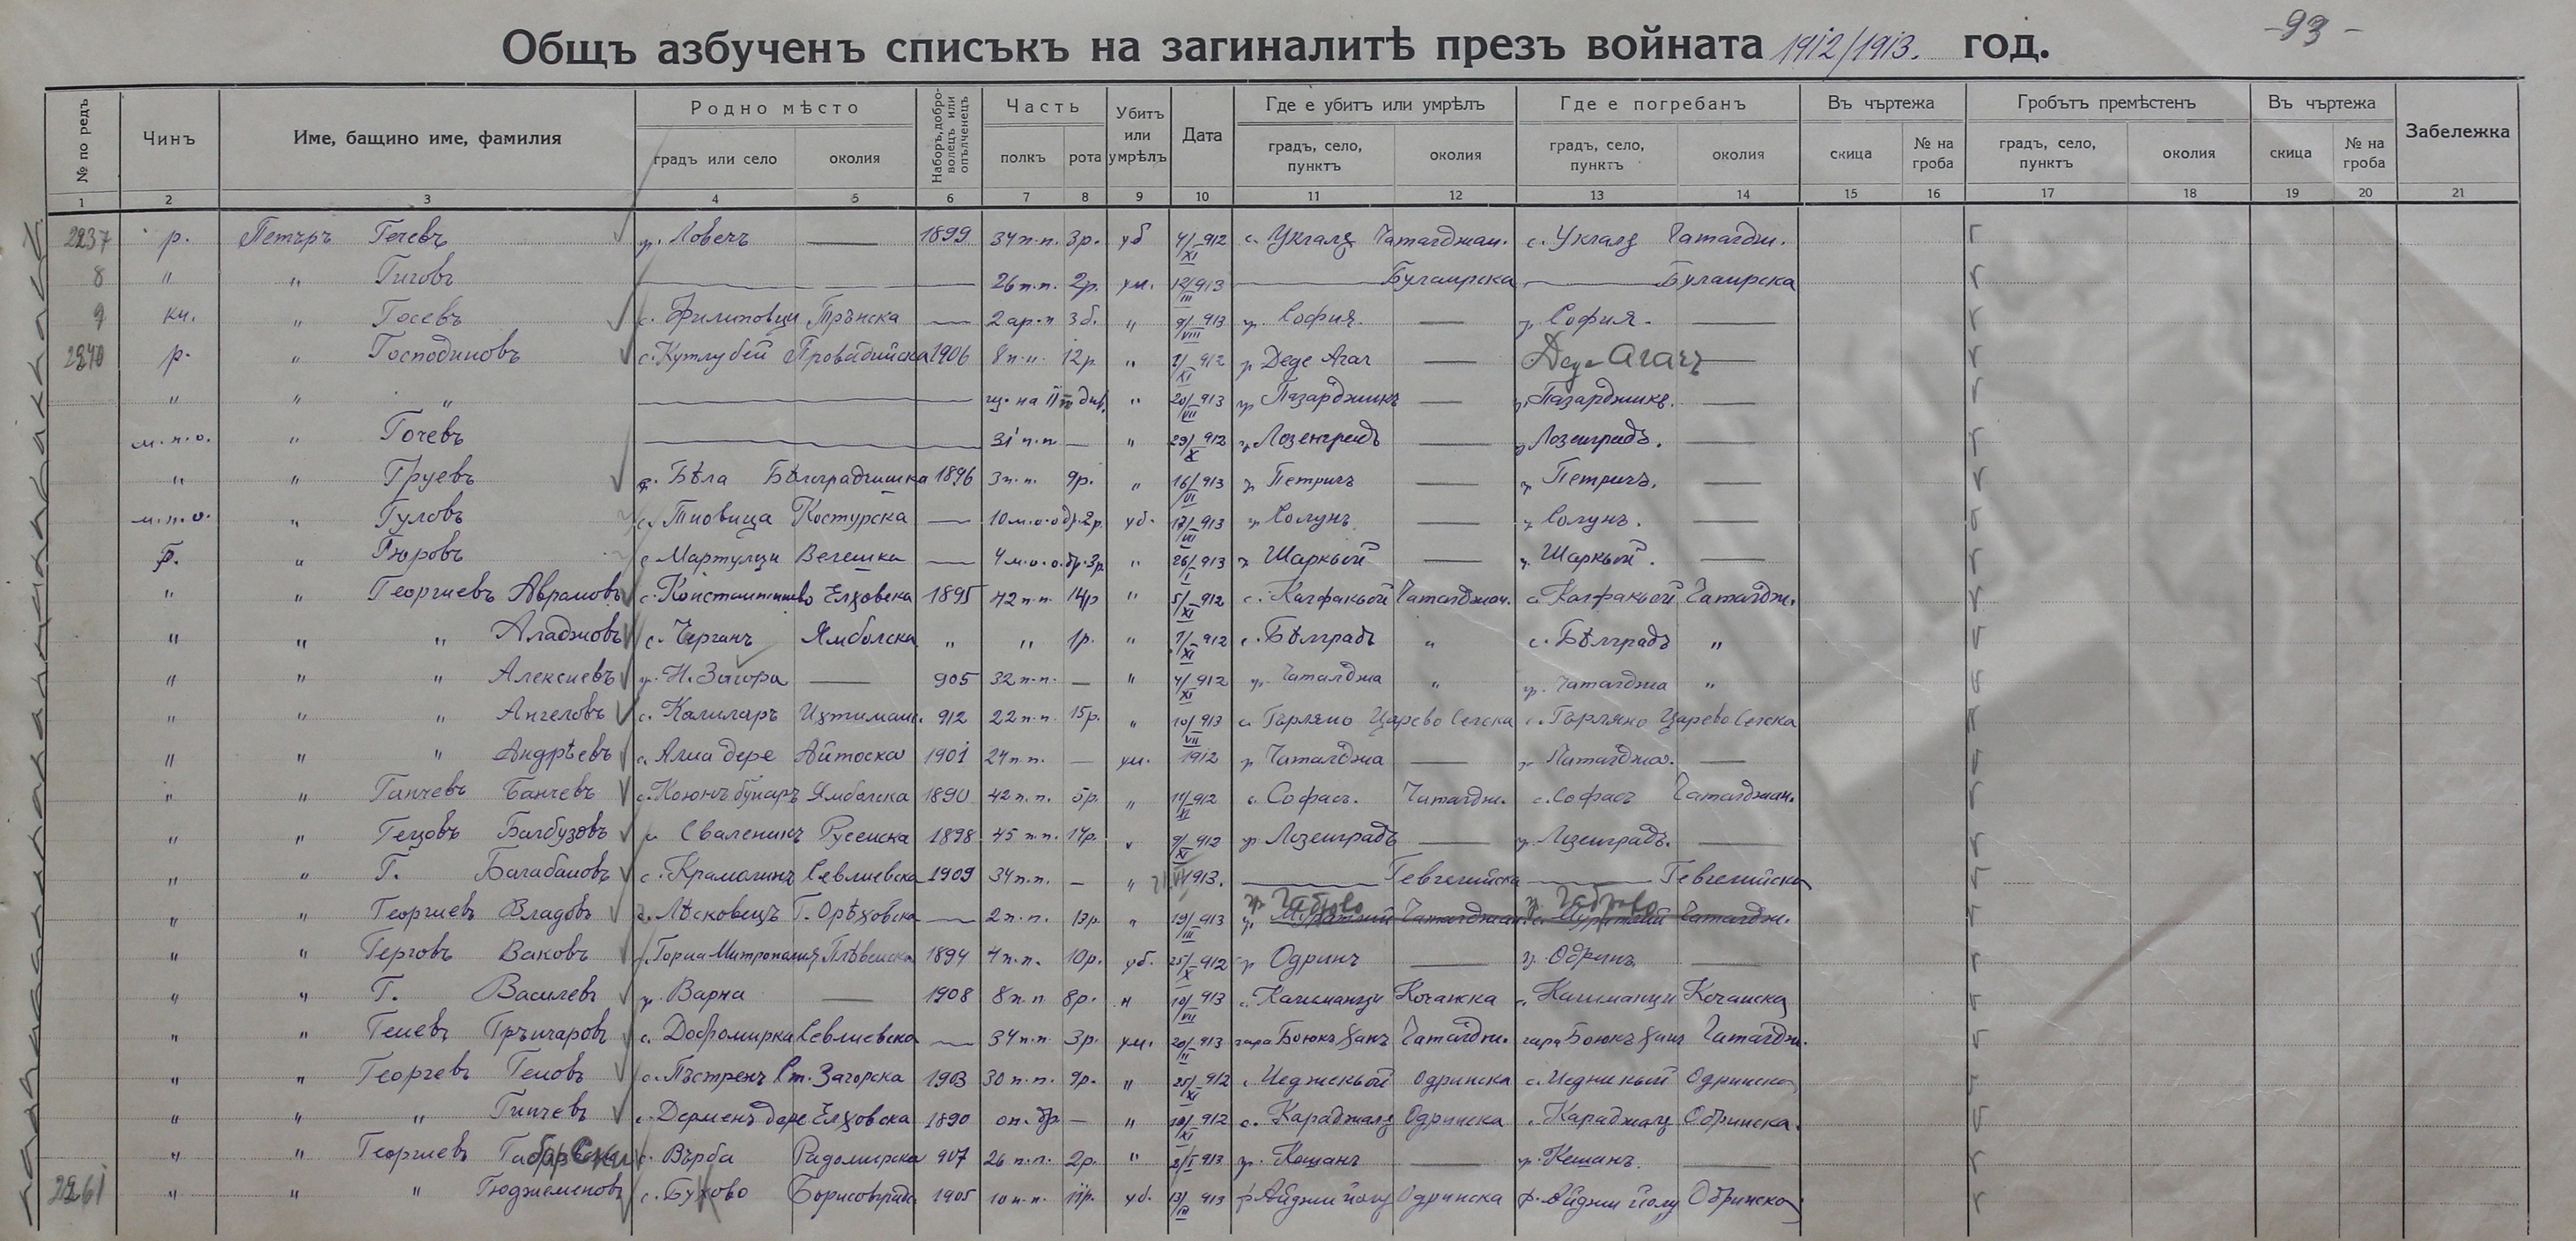 -93-
Общъ азбученъ списъкъ на загиналитѣ презъ войната 1912/1913. год.
№ по редъ | Чинъ | Име, бащино име, фамилия | Родно мѣсто | Наборъ, доброволецъ или опълченецъ | Часть | Убитъ или умрѣлъ | Дата | Где е убитъ или умрѣлъ | Где е погребанъ | Въ чъртежа | Гробътъ премѣстенъ | Въ чъртежа | Забележка
градъ или село | околия | полкъ | рота | градъ, село, пунктъ | околия | градъ, село, пунктъ | околия | скица | № на гроба | градъ, село, пунктъ | околия | скица | № на гроба
1 2 3 4 5 6 7 8 9 10 11 12 13 14 15 16 17 18 19 20 21
2237 р. Петъръ Гечевъ гр. Ловечъ — 1899 34 п.п. 3р. уб 4/XI 912 с. Укгаля Чаталджан. с. Укгаля Чаталдж.
8 " " Гиговъ — 26 п.п. 2р. ум. 12/III 913 — Булаирска — Булаирска
9 кн. " Госевъ с. Филиповци Трънска — 2 ар.п 3б. " 9/VIII 913 гр. София — гр. София. —
2240 р. " Господиновъ с. Кутлубей Провадийска 1906 8 п.п. 12р. " /XI 912 гр Деде Агач — Деде Агачъ —
" " " — на II див. " 20/VII 913 гр Пазарджикъ — гр. Пазарджикъ. —
м.п.о. " Гочевъ — 31 п.п. — " 29/X 912 гр Лозенградъ — гр Лозенградъ. —
" " Груевъ с. Бѣла Бѣлоградчишка 1896 3 п.п. 9р. " 16/VI 913 гр Петричъ — гр Петричъ. —
м.п.о. " Гуловъ с. Тиовица Костурска — 10 м.о.о др. 2р. уб. 17/VI 913 гр Солунъ — гр Солунъ. —
р. " Гюровъ с Мартулци Велешка — 4 м.о.о. др. 3р. " 26/I 913 гр Шаркьой — гр. Шаркьой. —
" " Георгиевъ Аврамовъ с. Константиново Елховска 1895 42 п.п. 14р " 5/XI 912 с. Калфакьой Чаталджан. с. Калфакьой Чаталдж.
" " " Аладжовъ с. Черганъ Ямболска " " 1р. " 7/XI 912 с. Бѣлградъ " с. Бѣлградъ "
" " " Алексиевъ гр. Н. Загора — 905 32 п.п. — " 4/XI 912 гр. Чаталджа " гр. Чаталджа "
" " " Ангеловъ с. Калиларъ Ихтиманс. 912 22 п.п. 15р. " 10/VII 913 с. Горляно Царево Селска с. Горляно Царево Селска
" " " Андрѣевъ с. Алма дере Айтоска 1901 24 п.п. — ум. 1912 гр Чаталджа — гр Чаталджа. —
" " Ганчевъ Банчевъ с. Коюнъ бунаръ Ямболска 1890 42 п.п. 5р. " 11/XI 912 с. Софасъ. Чаталдж. с. Софасъ Чаталджан.
" " Гецовъ Балбузовъ с Сваленикъ Русенска 1898 45 п.п. 14р. " 9/XI 912 гр Лозенградъ — гр Лозенградъ. —
" " Г. Балабановъ с. Крамолинъ Севлиевска 1909 34 п.п. — " 913. — Гевгелийска — Гевгелийска
" " Георгиевъ Владовъ с. Лѣсковецъ Г. Орѣховска — 2 п.п. 13р. " 19/III 913 гр Габрово Чаталджан. гр. Габрово Чаталдж.
" " Герговъ Ваковъ с. Горна Митрополия Плѣвенска 1894 4 п.п. 10р. уб. 25/X 912 гр Одринъ — гр. Одринъ —
" " Г. Василевъ гр. Варна — 1908 8 п.п 8р. " 10/VII 913 с. Калиманци Кочанска с. Калиманци Кочанска
" " Геневъ Грънчаровъ с. Добромирка Севлиевска — 34 п.п 3р. ум. 20/II 913 гара Боюкъ ханъ Чаталдж. гара Боюкъ ханъ Чаталдж.
" " Георгевъ Геновъ с. Пъстренъ Ст. Загорска 1903 30 п.п. 9р. " 25/XI 912 с. Иеджекьой Одринска с. Иеджекьой Одринска
" " " Гинчевъ с. Дерменъ дере Елховска 1890 оп. др. — " 10/XI 912 с. Караджалу Одринска с. Караджалу Одринска.
" " Георгиевъ Габарски с. Върба Радомирска 907 26 п.п. 2р. " 2/I 913 гр. Кешанъ — гр. Кешанъ. —
2261 " " " Гюджеменовъ с. Буково Борисовградс 1905 10 п.п. 11р. уб. 13/III 913 ф Айджи йолу Одринска ф. Айджи йолу Одринска